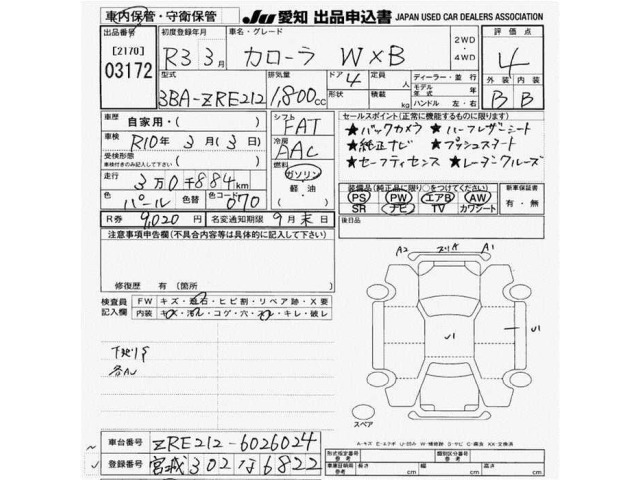 車内保管・守衛保管
JU 愛知 出品申込書 JAPAN USED CAR DEALERS ASSOCIATION
出品番号
[2170]
03172
初度登録年月
R3 3月
車名・グレード
カローラ W×B
2WD
・
4WD
評価点
4
型式
3BA-ZRE212
排気量
1,800cc
ドア 4
形状
定員 人
積載 kg
ディーラー・並行
モデル年式 年
ハンドル 左・右
外装 内装
B B
車歴 自家用・( )
車検 R10年 3月 (3日)
受検形態
車検付きのみ記入して下さい ( )
走行 3万0千884km
色 パール 色替 色コード 070
シフト FAT
冷房 AAC
燃料 ガソリン
軽油
・
( )
セールスポイント(正常に機能するものに限ります)
★バックカメラ ★ハーフレザーシート
★純正ナビ ★プッシュスタート
★セーフティセンス ★レーダークルーズ
装備品(純正品に限り○をつけてください)
PS PW エアB AW
SR ナビ TV カワシート
新車保証書
有・無
R券 9,020円 名変通知期限 9月末日
後日品
注意事項申告欄(不具合内容等は具体的に記入して下さい)
修復歴 有 (箇所 )
検査員記入欄
FW キズ・飛石・ヒビ割・リペア跡・X要
内装 キズ・汚レ・コゲ・穴・スレ・キレ・破レ
A2 A1
U1
U1
スペア
車台番号 ZRE212-6026024
登録番号 宮城302な6822
形式指定番号 参考
類別区分番号 参考
車車証明 参考 長さ cm 幅 cm 高さ cm